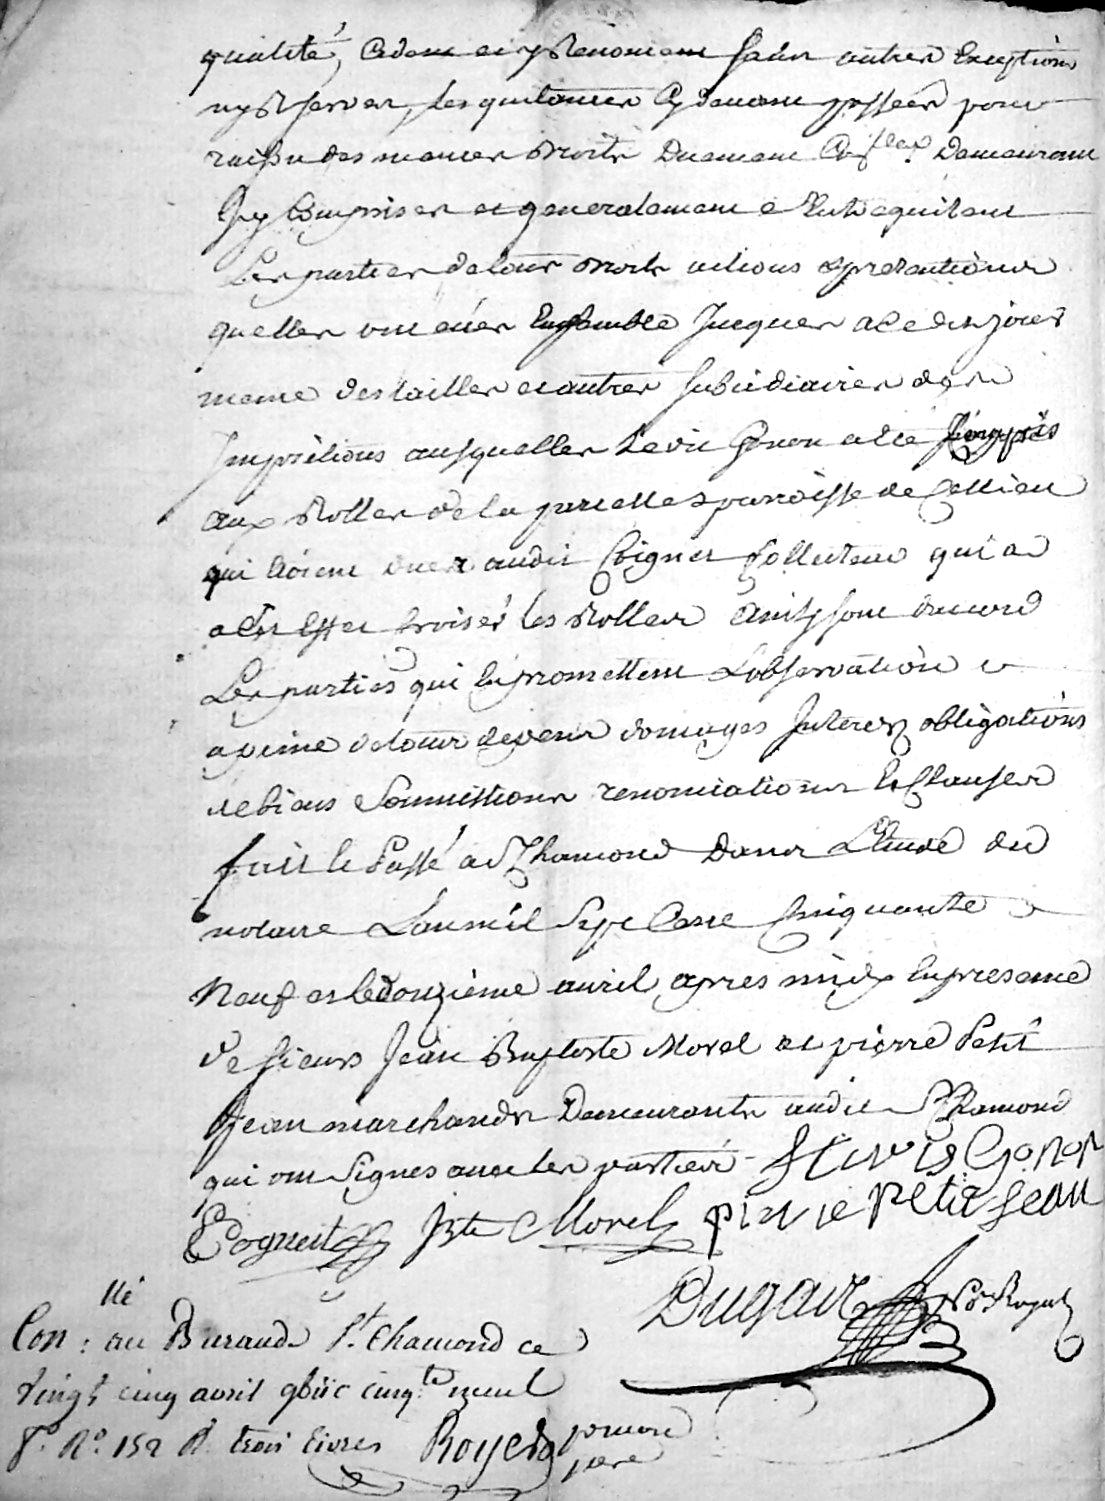 qualité, cedent et y renoncent sans autres Exceptions
ny reserves, les quitances cy devant passées pour
raison des memes droits Demeurant
Icy Comprises et generalement Entraquitent
Les parties de tous droits actions et pretentions
quelles ont eües Ensemble Jusques a ce dit jour
meme des tailles et autres subcidiaires
Impositions ausquelles Ledit Gonon a été Compris
aux Rolles de la parcelle parroisse de Cellieu
qui étoient dues audit Coignet Collecteur qui a
a cet effet croisé les Rolles Ainsy sont d'accord
Les parties qui En promettent L'observation
a peine de tous depens domages Interez obligations
de biens Soumissions renonciations Et Clauses
fait et Passé a St Chamond dans L'Etude du
notaire L'an mil Sept Cent Cinquante
Neuf et le douzieme avril apres midy En presence
de sieurs Jean Baptiste Morel et pierre Petit
Jean marchands Demeurants audit St Chamond
qui ont signés avec les parties Gonon
Cogneit Jbte Morel pierre Petit Jean
Dugas No.re Royal
Con.llé au Bureau de St. Chamond ce
vingt cinq avril cinq.te neuf
f.o R.o 152 R. trois livres Royer